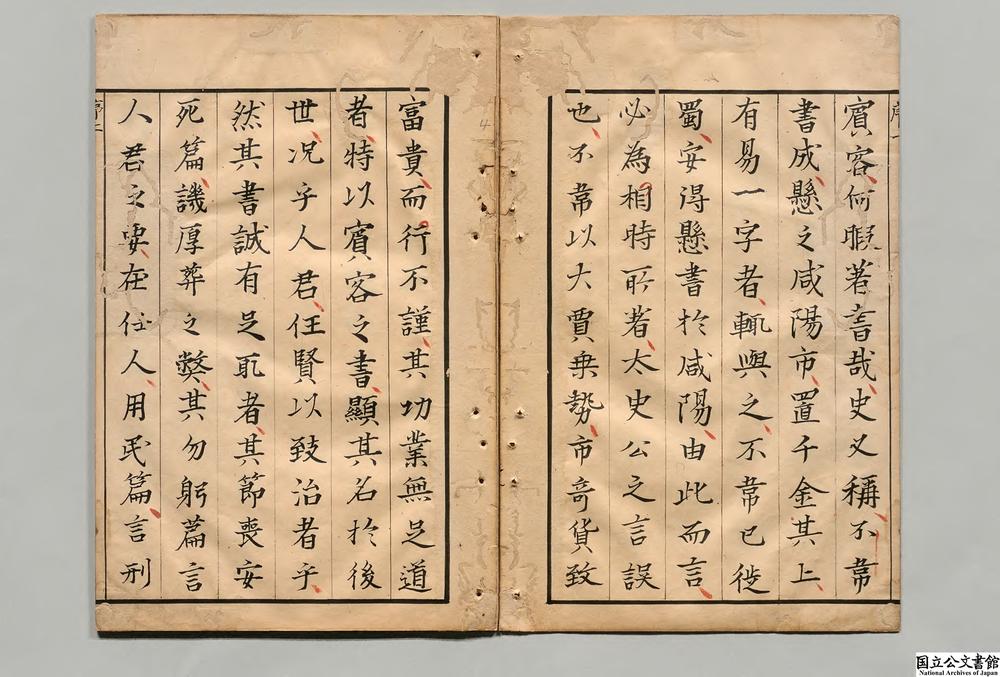 賓客何暇著書哉史又稱不韋
書成懸之咸陽市置千金其上
有易一字者輒與之不韋已徙
蜀安得懸書於咸陽由此而言
必為相時所著太史公之言誤
也不韋以大賈乗勢市奇貨致
富貴而行不謹其功業無足道
者特以賓客之書顯其名於後
世况乎人君任賢以致治者乎
然其書誠有足取者其節喪安
死篇譏厚葬之弊其勿躬篇言
人君之要在任人用民篇言刑
国立公文書館
National Archives of Japan